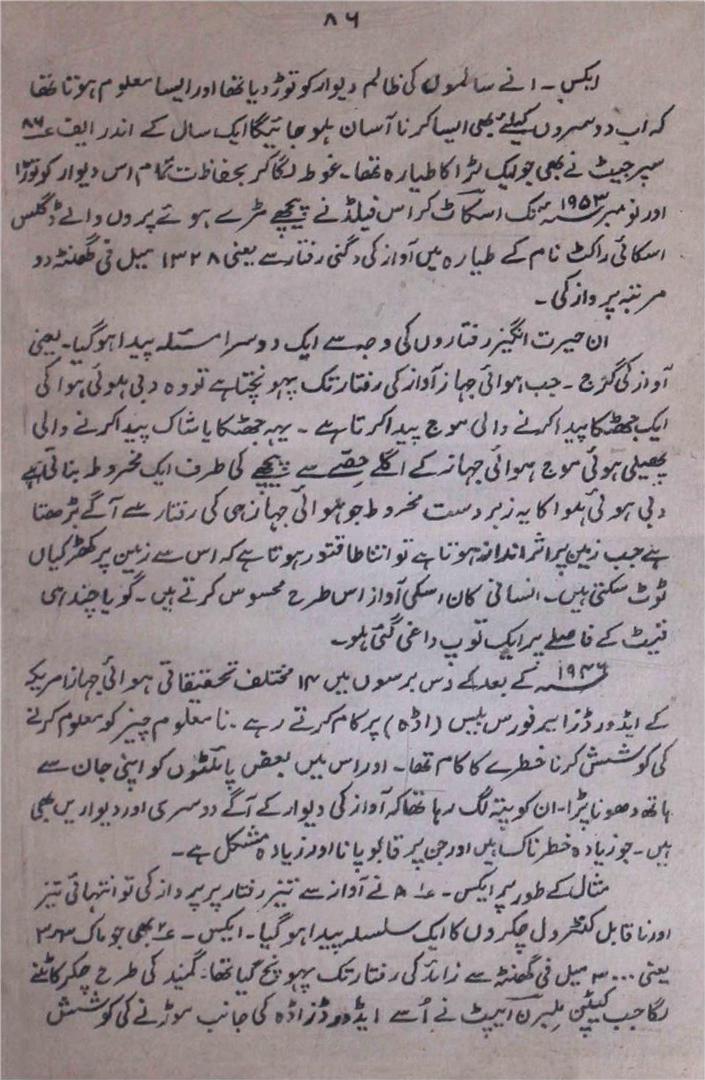 ۸۶
ایکس ۔ ا نے سالموں کی ظالم دیوار کو توڑ دیا تھا اور ایسا معلوم ہوتا تھا
کہ اب دوسروں کیلئے بھی ایسا کرنا آسان ہو جائیگا ایک سال کے اندر ایف ۸۶
سیر جیٹ نے بھی جو ایک لڑاکا طیارہ تھا۔ غوطہ لگا کر بحفاظت تمام اس دیوار کو توڑا
اور نومبر ۱۹۵۳ء تک اسکاٹ کراس فیلڈ نے پیچھے مڑے ہوئے پروں والے ڈگلس
اسکائی راکٹ نام کے طیارہ میں آواز کی دگنی رفتار سے یعنی ۱۳۲۸ میل فی گھنٹہ دو
مرتبہ پرواز کی ۔
ان حیرت انگیز رفتاروں کی وجہ سے ایک دوسرا مسئلہ پیدا ہو گیا۔ یعنی
آواز کی گرج ۔ جب ہوائی جہاز آواز کی رفتار تک پہونچتا ہے تو وہ دبی ہوئی ہوا کی
ایک جھٹکا پیدا کرنے والی موج پیدا کرتا ہے ۔ یہہ جھٹکا یا شاک پیدا کرنے والی
پھیلی ہوئی موج ہوائی جہاز کے اگلے حصے سے پیچھے کی طرف ایک مخروط بناتی ہے
دبی ہوئی ہوا کا یہ زبردست مخروط جو ہوائی جہاز ہی کی رفتار سے آگے بڑھتا
ہے جب زمین پر اثر انداز ہوتا ہے تو اتنا طاقتور ہوتا ہے کہ اس سے زمین پر کھڑکیاں
ٹوٹ سکتی ہیں۔ انسانی کان اسکی آواز اس طرح محسوس کرتے ہیں ۔ گویا چند ہی
فیٹ کے فاصلے پر ایک توپ داغی گئی ہو۔
۱۹۴۶ء کے بعد کے دس برسوں میں ۱۴ مختلف تحقیقاتی ہوائی جہاز امریکہ
کے ایڈورڈز ایر فورس بیس (اڈہ) پر کام کرتے رہے ۔ نا معلوم چیز کو معلوم کرنے
کی کوشش کرنا خطرے کا کام تھا۔ اور اس میں بعض پائلٹوں کو اپنی جان سے
ہاتھ دھونا پڑا۔ ان کو پتہ لگ رہا تھا کہ آواز کی دیوار کے آگے دوسری اور دیواریں بھی
ہیں ۔ جو زیادہ خطرناک ہیں اور جن پر قابو پانا اور زیادہ مشکل ہے ۔
مثال کے طور پر ایکس ۔ نے آواز سے تیز رفتار پر پرواز کی تو انتہائی تیز
اور نا قابل کنٹرول چکروں کا ایک سلسلہ پیدا ہو گیا ۔ ایکس ۔ ۲ بھی جو ماک
یعنی ۳۰۰۰ میل فی گھنٹہ سے زائد کی رفتار تک پہونچ گیا تھا۔ گیند کی طرح چکر کاٹنے
لگا جب کیپٹن ملبرن ایپٹ نے اُسے ایڈورڈز اڈہ کی جانب موڑنے کی کوشش